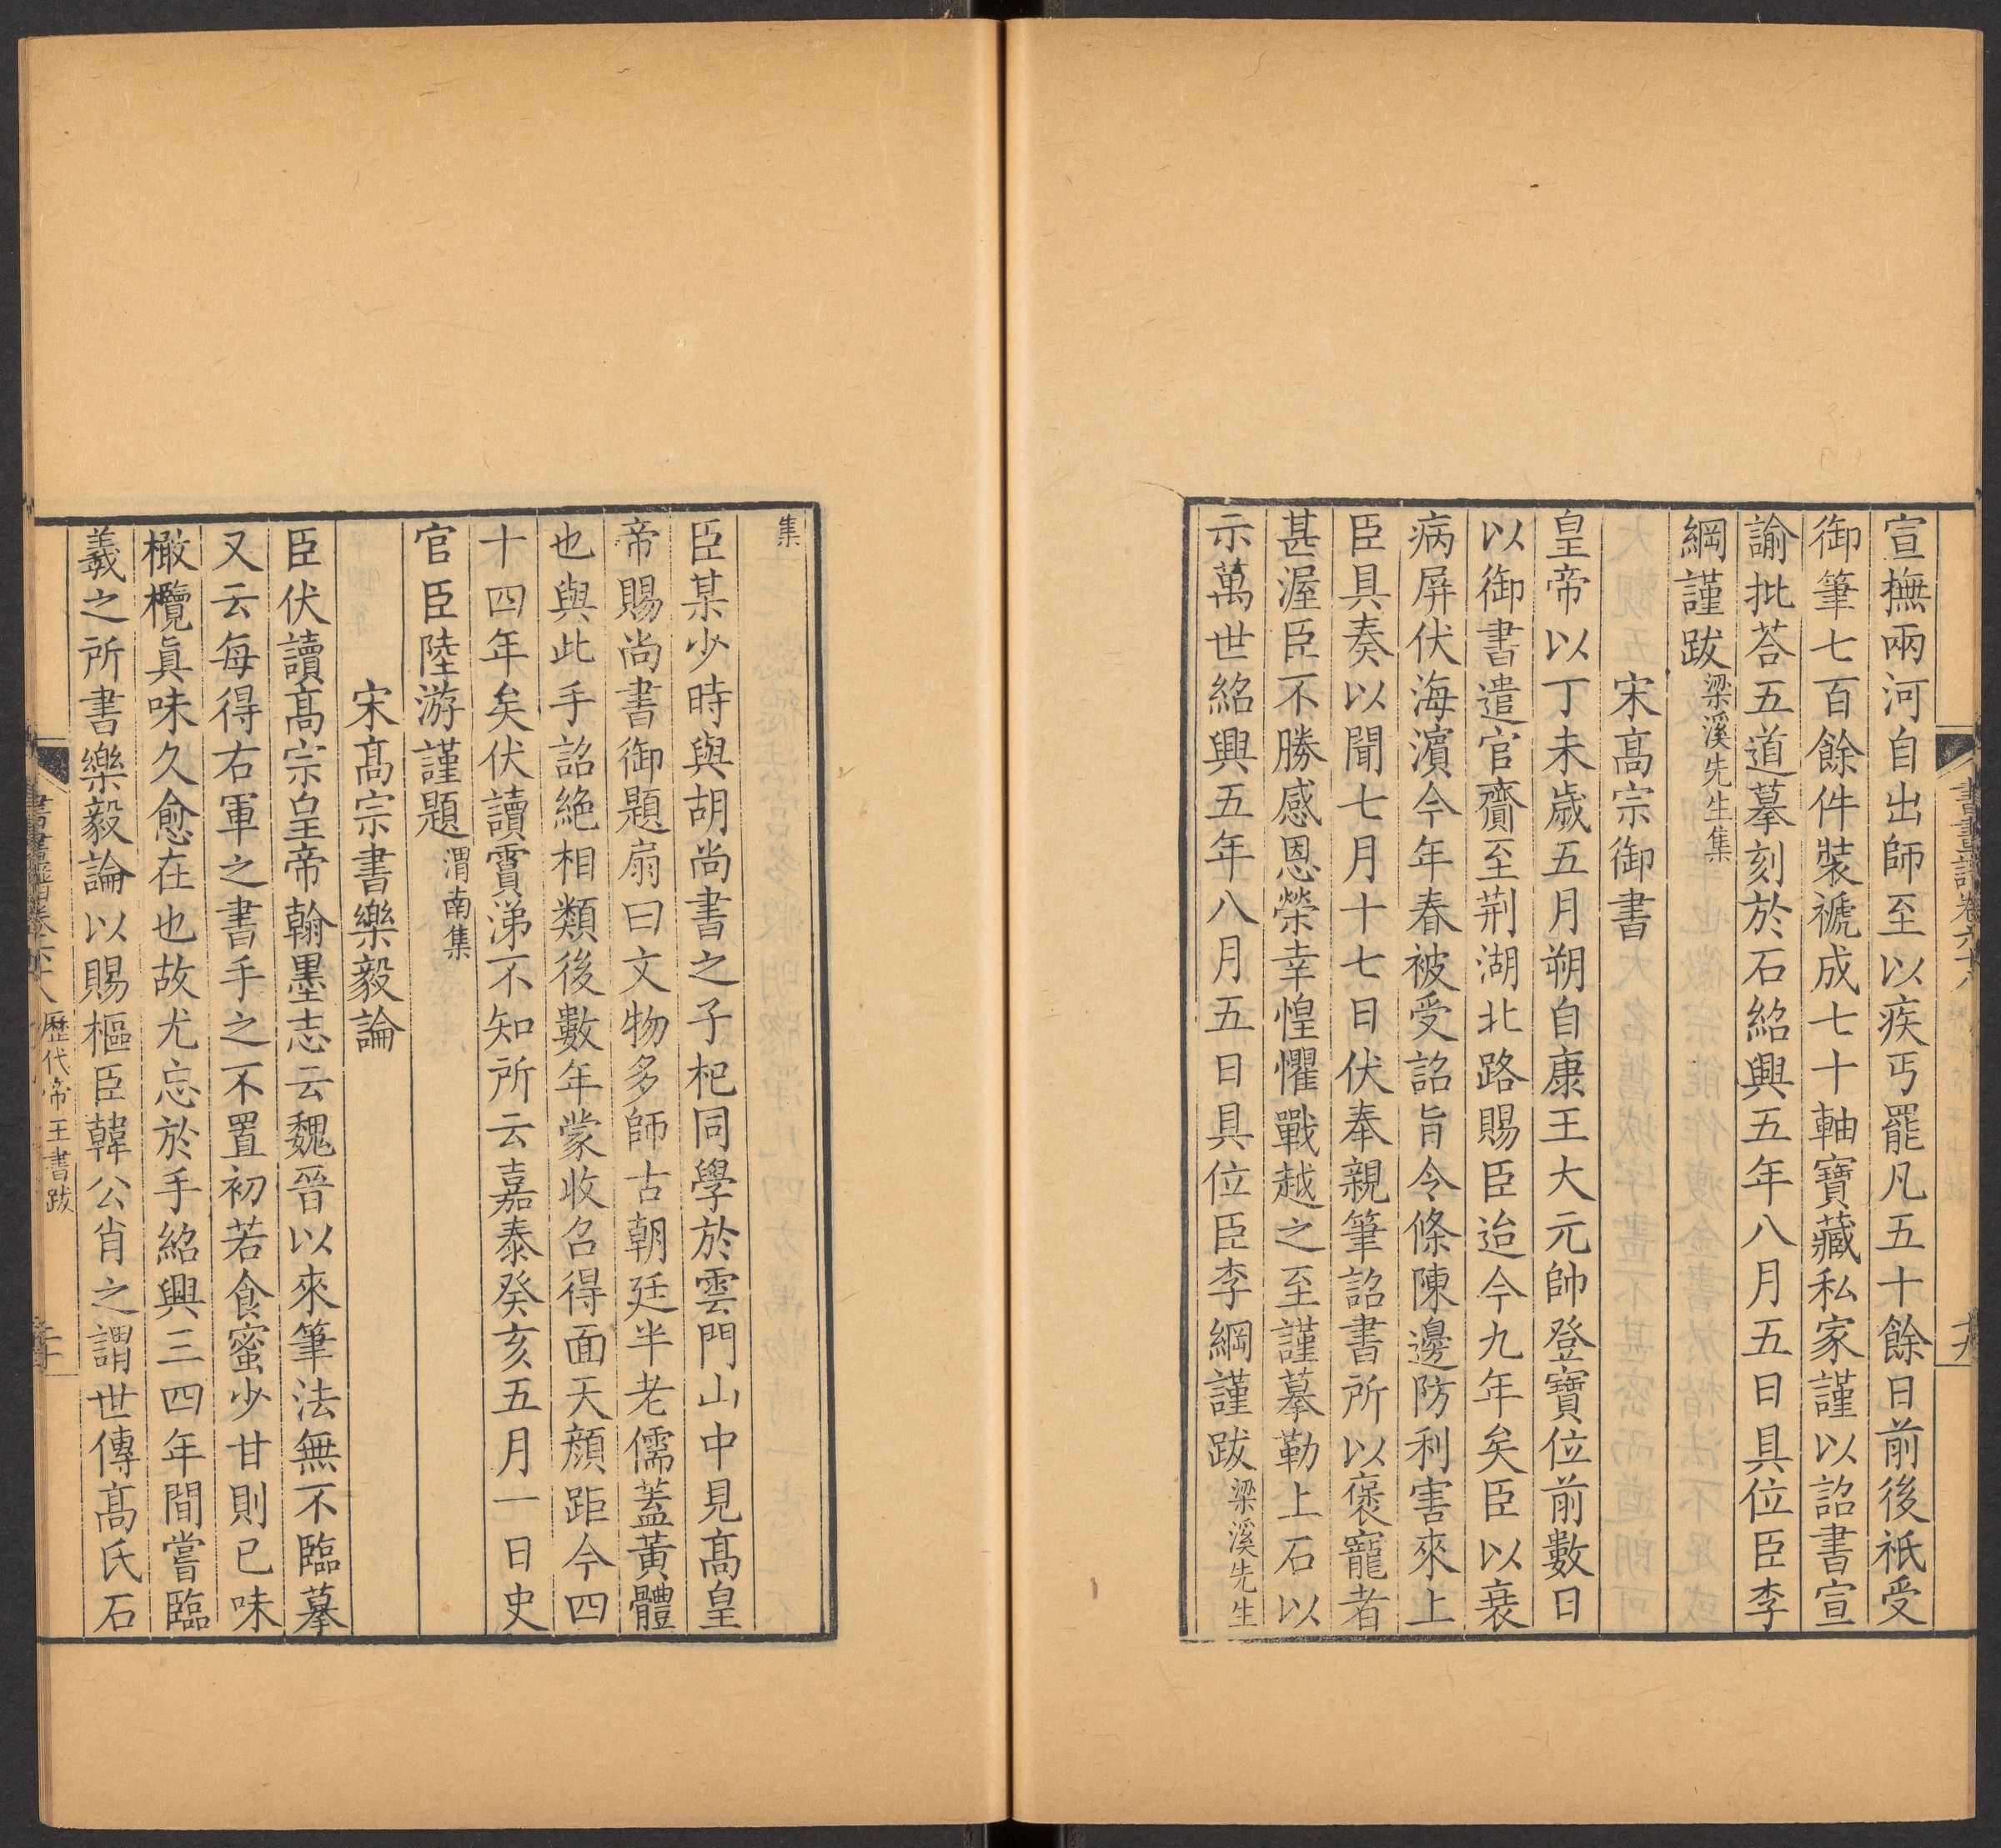 宣撫兩河自出師至以疾丐罷凡五十餘日前後祇受
御筆七百餘件裝褫成七十軸寶藏私家謹以詔書宣
諭批荅五道摹刻於石紹興五年八月五日具位臣李
綱謹跋梁溪先生集
宋髙宗御書
皇帝以丁未歲五月朔自康王大元帥登寶位前數日
以御書遣官齎至荆湖北路賜臣迨今九年矣臣以衰
病屏伏海濵今年春被受詔旨令條陳邊防利害來上
臣具奏以聞七月十七日伏奉親筆詔書所以褒寵者
甚渥臣不勝感恩榮幸惶懼戰越之至謹摹勒上石以
示萬世紹興五年八月五日具位臣李綱謹跋梁溪先生
集
臣某少時與胡尚書之子杞同學於雲門山中見髙皇
帝賜尚書御題扇曰文物多師古朝廷半老儒葢黃體
也與此手詔絶相類後數年蒙收召得面天顔距今四
十四年矣伏讀霣涕不知所云嘉泰癸亥五月一日史
官臣陸游謹題渭南集
宋髙宗書樂毅論
臣伏讀髙宗皇帝翰墨志云魏晉以來筆法無不臨摹
又云每得右軍之書手之不置初若食蜜少甘則已味
橄欖眞味久愈在也故尤忘於手紹興三四年間嘗臨
羲之所書樂毅論以賜樞臣韓公肖之謂世傳髙氏石
歷代帝王書跋